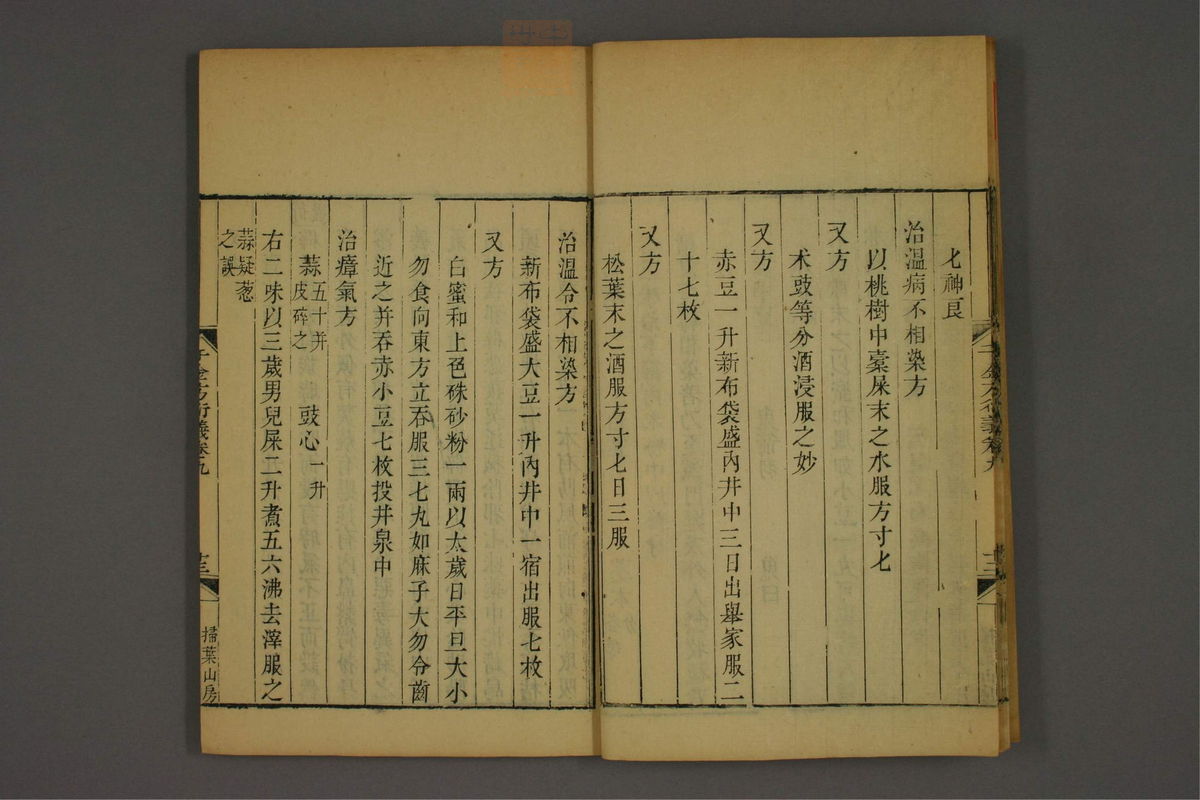 匕神良
治溫病不相染方
以桃樹中蠹屎末之水服方寸匕
又方
术豉等分酒浸服之妙
又方
赤豆一升新布袋盛內井中三日出舉家服二
十七枚
又方
松葉末之酒服方寸匕日三服
治溫令不相染方
新布袋盛大豆一升內井中一宿出服七枚
又方
白蜜和上色硃砂粉一兩以太歲日平旦大小
勿食向東方立吞服三七丸如麻子大勿令齒
近之并吞赤小豆七枚投井泉中
治瘴氣方
蒜五十并皮碎之 豉心一升
右二味以三歲男兒屎二升煮五六沸去滓服之
蒜疑葱
之誤
千金方衍義卷九
掃葉山房